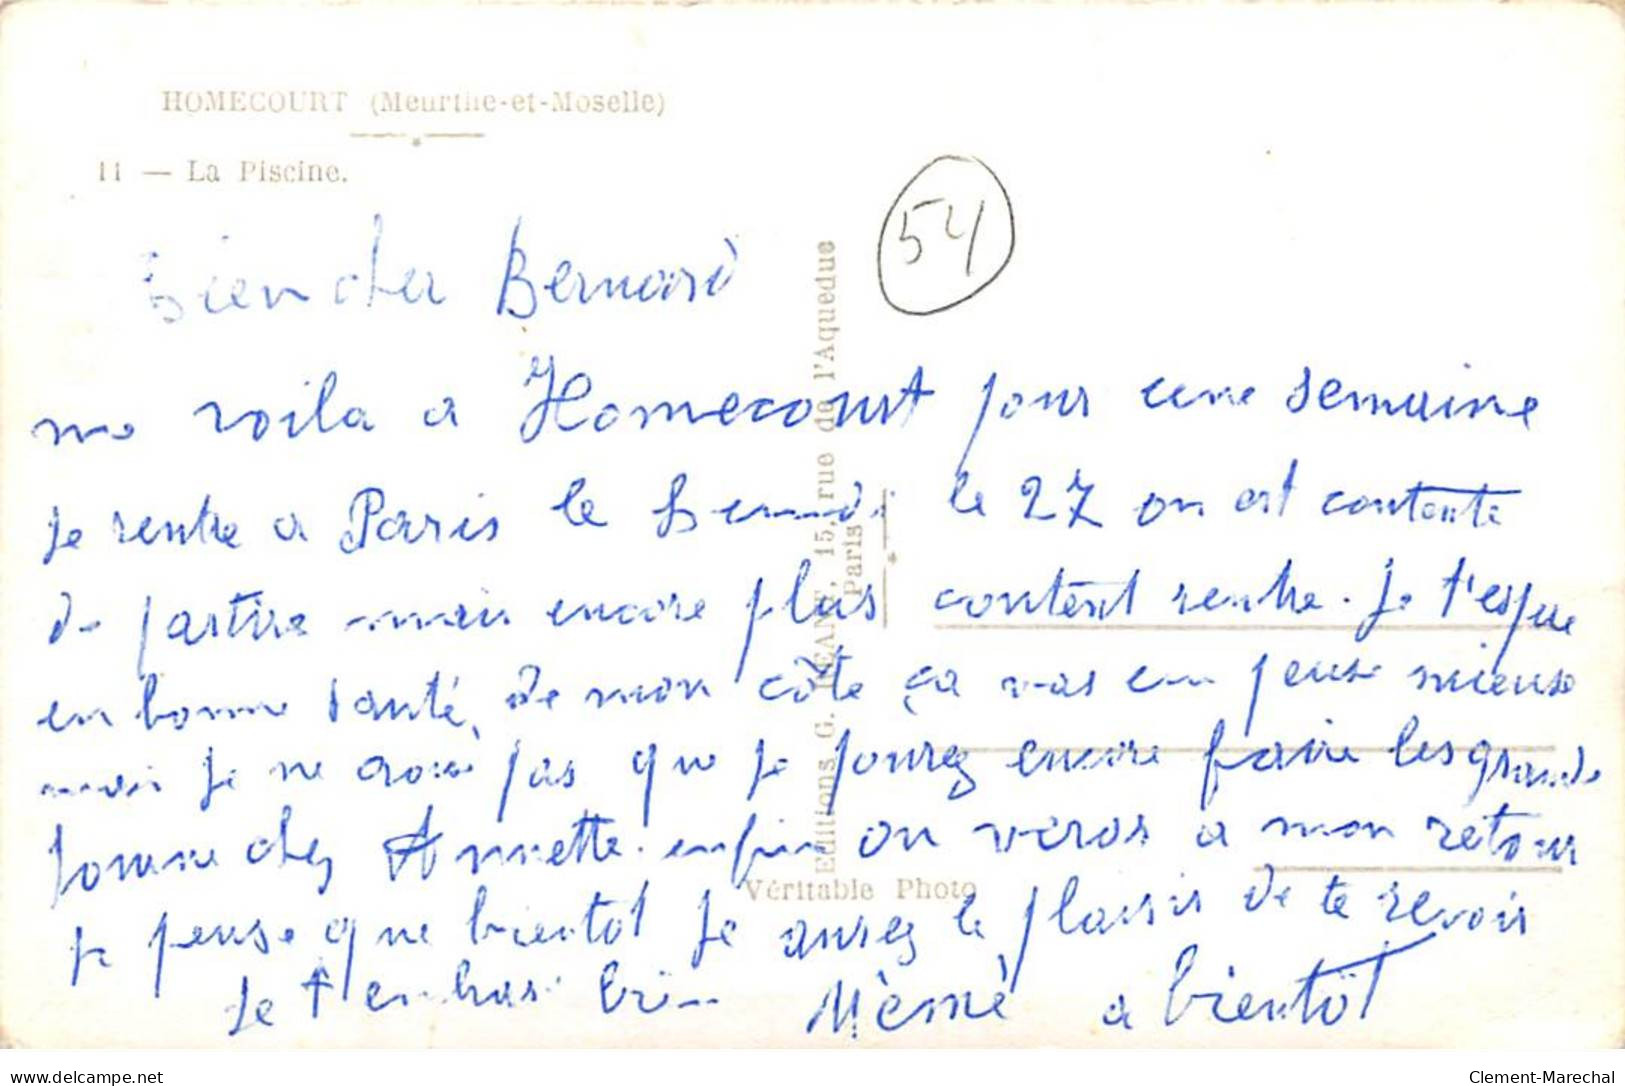 HOMECOURT (Meurthe-et-Moselle)
11 — La Piscine.
54
Editions G. REANT, 15, rue de l'Aqueduc
Paris
Véritable Photo
Bien cher Bernard
me voila a Homecourt pour une semaine
je rentre a Paris le Lundi le 27 on est contente
de partire mais encore plus content rentre. Je t'espue
en bonne santé, de mon côte ça vas un peuse mieuse
mais je ne crois pas que je pourez encore faire les grande
jounne chez Annette. enfin on veras a mon retour
je pense que bientot je aurez le plaisir de te revoir
Je t'embrasse bien Mèmè a bientôt
www.delcampe.net
Clement-Marechal